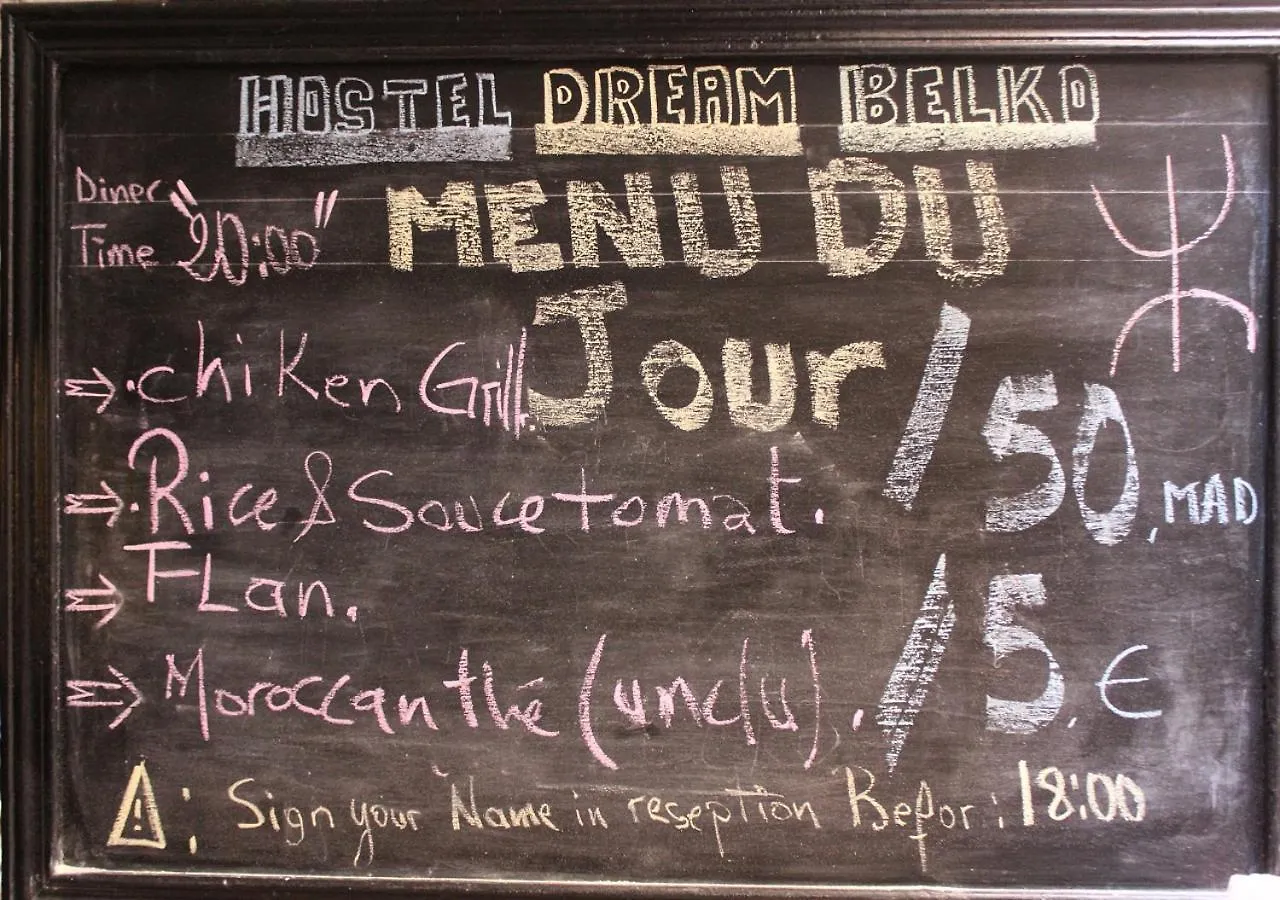 HOSTEL DREAM BELKO
Diner
Time "20:00"
MENU DU
Jour
⇒ .chiken Grill.
/50, MAD
⇒ .Rice & Souce tomat.
⇒ FLan.
⇒ Moroccan thé (unclu).
/5, €
⚠ : Sign your Name in reseption Befor : 18:00